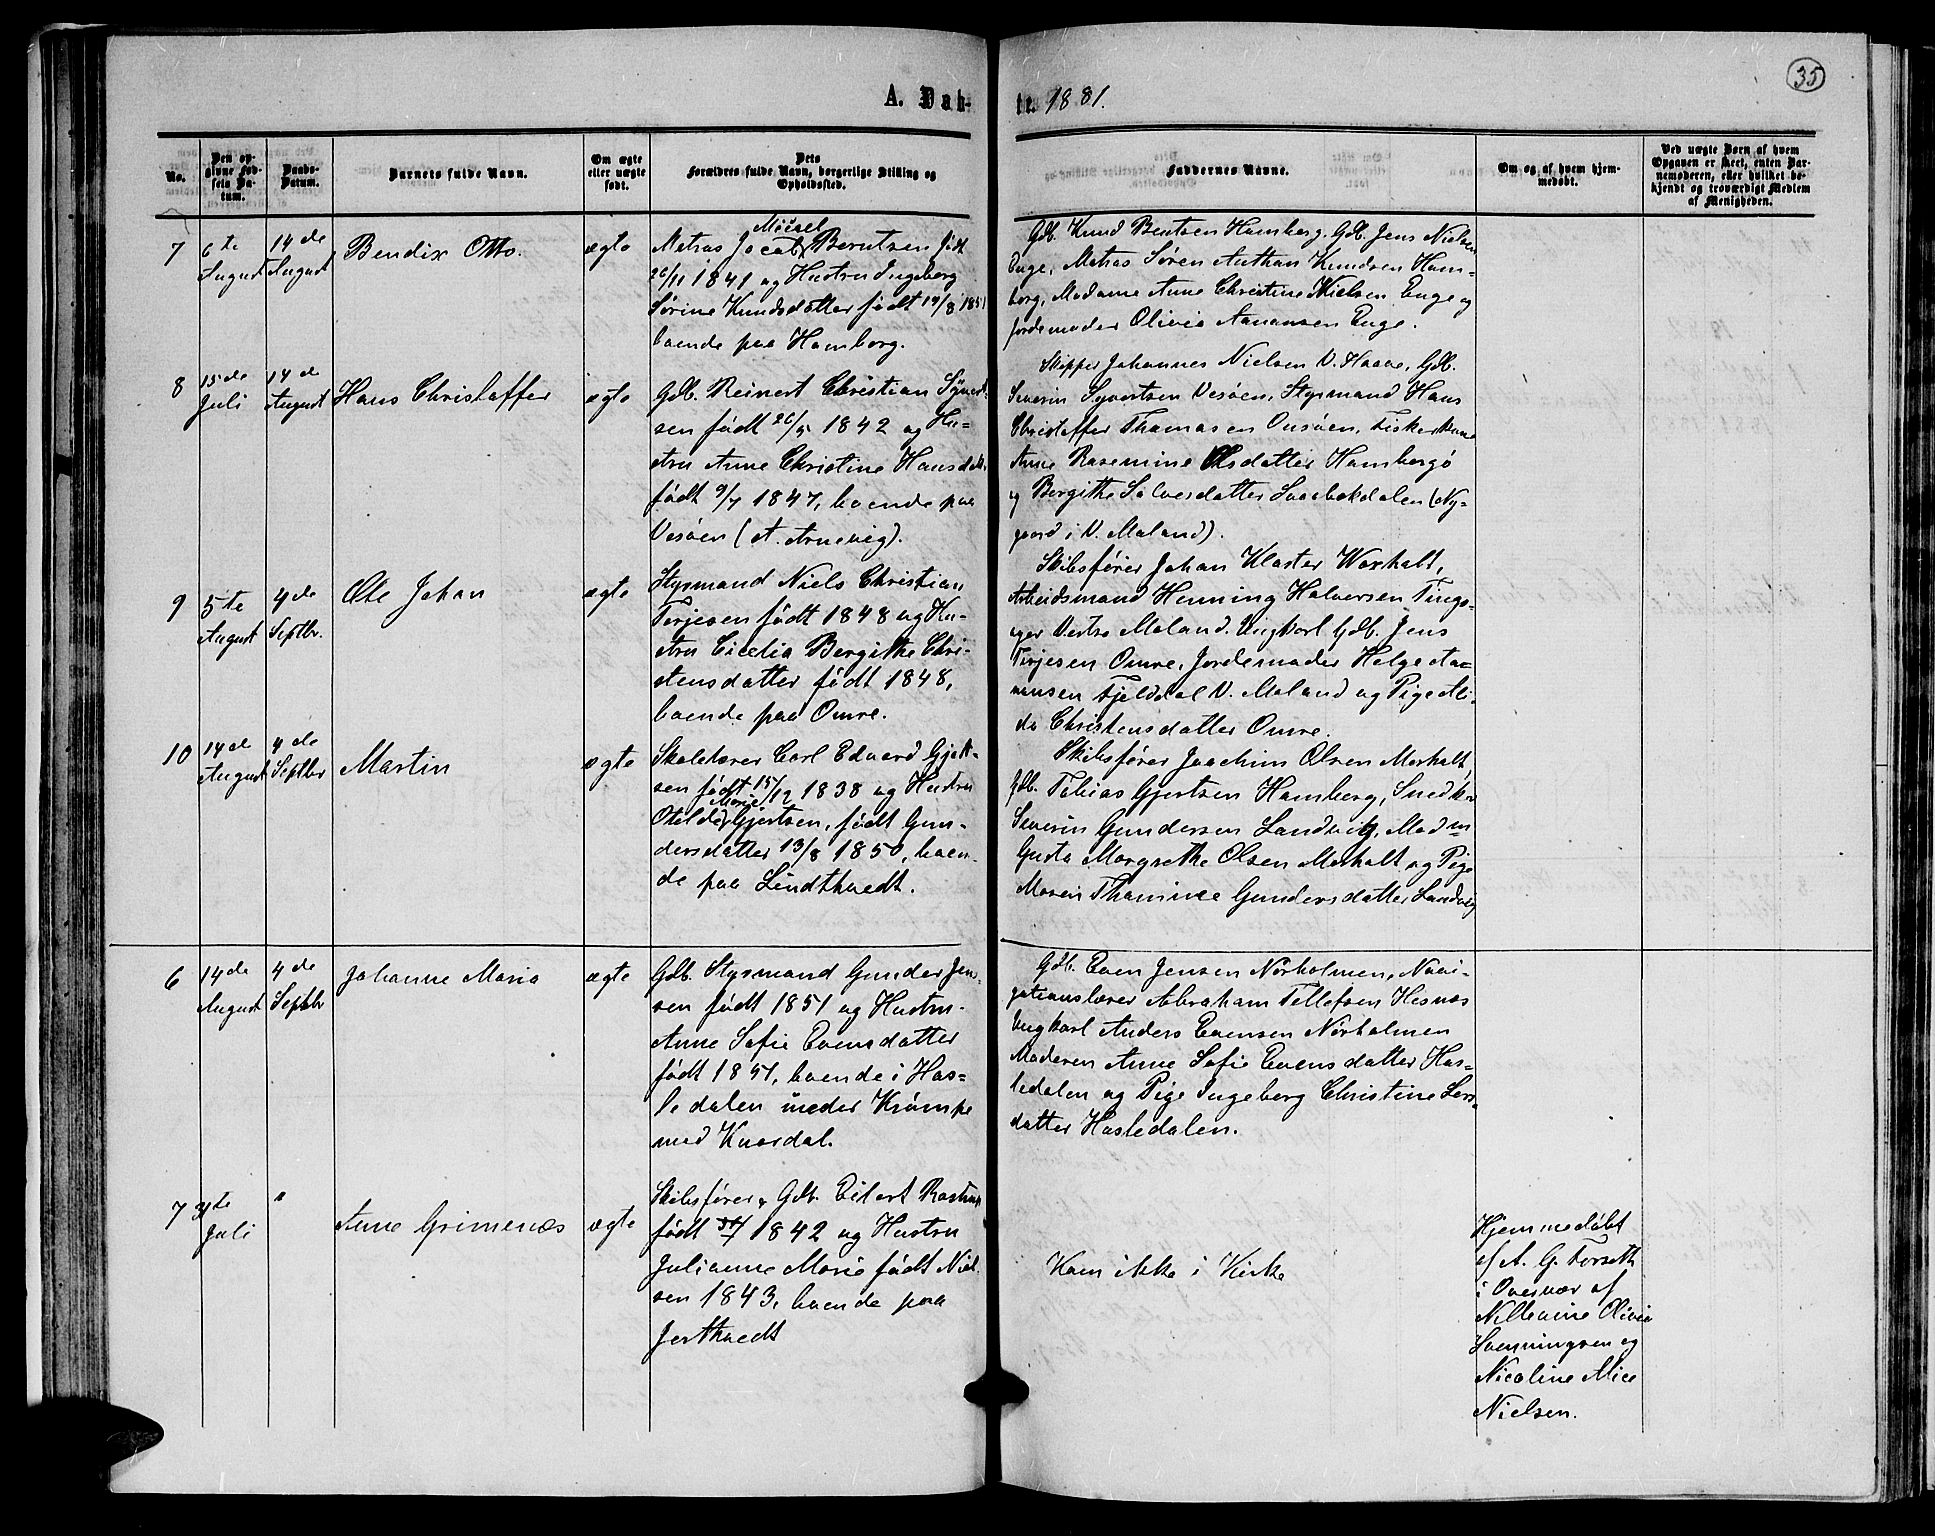 35
A. Dåb.
te. 1881.
No.
Den opgivne Fødsels Datum.
Daabs-Datum.
Barnets fulde Navn.
Om ægte eller uægte født.
Dets Forældres fulde Navn, borgerlige Stilling og Opholdssted.
Faddernes Navne.
Om og af hvem hjemmedøbt.
Ved uægte Børn af hvem Opgaven er skeet, enten Barnemoderen, eller hvilket bekjendt og troværdigt Medlem af Menigheden.
7
6te August
14de August
Bendix Otto.
ægte
Matros Jacob Berntsen født
26/11 1841 og Hustru Ingeborg
Sørine Knudsdatter født 14/8 1851
boende paa Hamborg.
Gdb. Knud Bentsen Hamberg, Gdb. Jens Nielsen
Enge, Matros Søren Anthon Knudsen Ham-
borg, Madame Anne Christine Nielsen Enge og
Jordemoder Olivia Aanansen Enge.
8
15de Juli
14de August
Hans Christoffer
ægte
Gdb. Reinert Christian Syvert-
sen født 26/5 1842 og Hu-
stru Anne Christine Hansdatt.
født 9/7 1847, boende paa
Vesøen (A. Arnevig).
Skipper Johannes Nielsen V. Haave, Gdb.
Severin Syvertsen Vesøen, Styrmand Hans
Christoffer Thomasen Onsøen, Fiskerkone
Anne Rasemine Olsdatter Hambergö
og Bergithe Salvesdatter Svaabekdalen (Ny-
gaard i V. Moland).
9
5te August
4de Septbr.
Ole Johan
ægte
Styrmand Niels Christian
Terjesen født 1848 og Hu-
stru Cicelia Bergithe Chri-
stensdatter født 1848,
boende paa Omre.
Skibsfører Johan Klaster Morholt,
Arbeidsmand Henning Halversen Tings-
ager Vestre Moland. Ungkarl Gdb. Jens
Terjesen Omre, Jordemoder Helge Aa-
nansen Fjelddal V. Moland og Pige Ali-
da Christensdatter Omre.
10
14de August
4de Septbr
Martin
ægte
Skolelærer Carl Edvard Gjert-
sen født 15/12 1838 og Hustru
Otilde Marie Gjertsen, født Gun-
dersdatter 13/8 1850, boen-
de paa Lindtvedt.
Skibsfører Joachim Olsen Morholt,
Gdb. Tobias Gjertsen Hamberg, Snedker
Severin Gundersen Landvig, Mad m
Gusta Margrethe Olsen Morholt og Pige
Maren Thamine Gundersdatter Landvig
6
14de August
4de Septbr
Johanne Maria
ægte
Gdb. Styrmand Gunder Jen-
sen født 1851 og Hustru
Anne Sofie Evensdatter
født 1851, boende i Has-
ledalen under Krømpe
med Knardal.
Gdb. Even Jensen Nørholmen, Navi-
gationslærer Abraham Tellefsen Hesnæs
Ungkarl Anders Evensen Nørholmen
Moderen Anne Sofie Evensdatter Has-
ledalen og Pige Ingeborg Christine Lars-
datter Hasledalen.
7
31te Juli
"
Anne Grimenæs
ægte
Skibsfører, Gdb. Eilert
født 1842 og Hustru
Julianne Marie født Niel-
sen 1843, boende paa
Jortvedt
Kom ikke i Kirke
Hjemmedøbt
af A. G. Forseth
i Overvær af
Nillevine Olivia
Svenningsen og
Nicoline Alice
Nielsen.